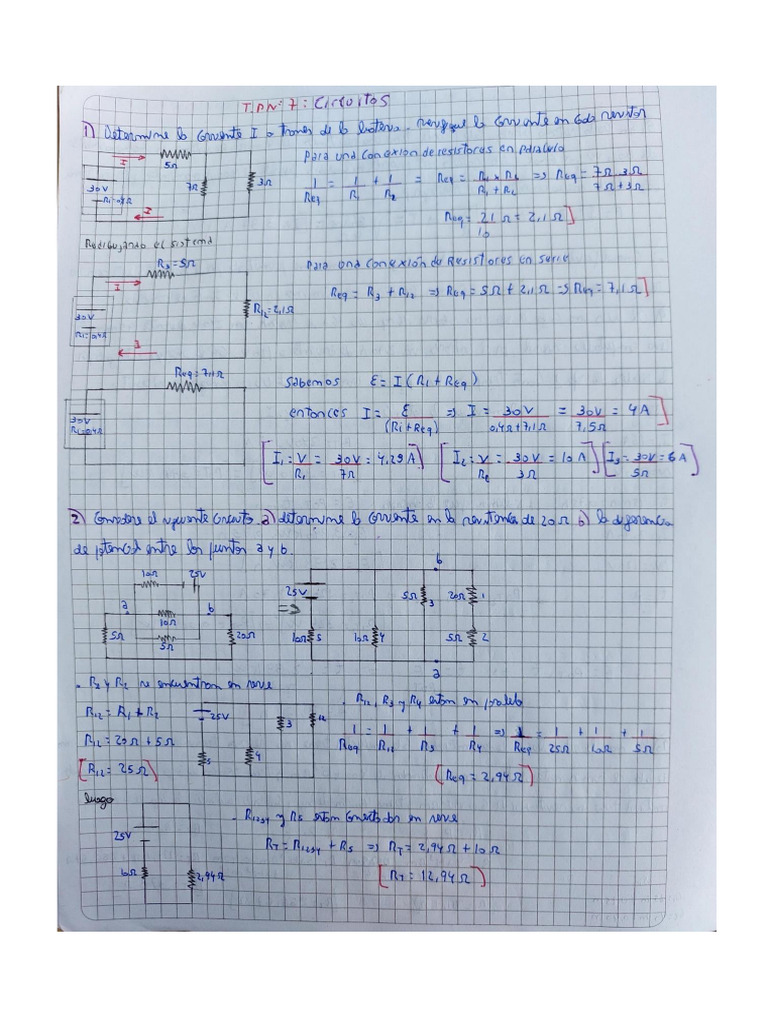 T.P.Nº 7: Circuitos
1) Determine la corriente I a traves de la batería. Averigue la corriente en cada resistor
I
5Ω
7Ω
3Ω
30V
Ri=0,4Ω
I
Para una conexion de resistores en paralelo
1/Req = 1/R1 + 1/R2 = Req = R1 x R2 / R1 + R2 => Req = 7Ω . 3Ω / 7Ω + 3Ω
Req = 21/10 Ω = 2,1Ω
Redibujando el sistema
R3=5Ω
I
30V
Ri=0,4Ω
R12=2,1Ω
I
Para una conexión de Resistores en serie
Req = R3 + R12 => Req = 5Ω + 2,1Ω => Req = 7,1Ω
Req=7,1Ω
30V
Ri=0,4Ω
Sabemos ε = I (Ri + Req)
entonces I = ε / (Ri + Req) => I = 30V / 0,4Ω + 7,1Ω = 30V / 7,5Ω = 4A
[I1 = V/R1 = 30V/7Ω = 4,29A] [I2 = V/R2 = 30V/3Ω = 10A] [I3 = 30V/5Ω = 6A]
2) Considere el siguiente circuito a) determine la corriente en la resistencia de 20Ω b) la diferencia
de potencial entre los puntos a y b.
10Ω 25V
a
b
10Ω
5Ω
5Ω
20Ω
=>
b
25V
5Ω 3
20Ω 1
10Ω 5
10Ω 4
5Ω 2
a
. R1 y R2 se encuentran en serie
R12 = R1 + R2
R12 = 20Ω + 5Ω
[R12 = 25Ω]
25V
3
12
5
4
. R12, R3 y R4 estan en paralelo
1/Req = 1/R12 + 1/R3 + 1/R4 => 1/Req = 1/25Ω + 1/10Ω + 1/5Ω
(Req = 2,94Ω)
luego
25V
10Ω
2,94Ω
. R1234 y R5 estan conectados en serie
RT = R1234 + R5 => RT = 2,94Ω + 10Ω
[RT = 12,94Ω]